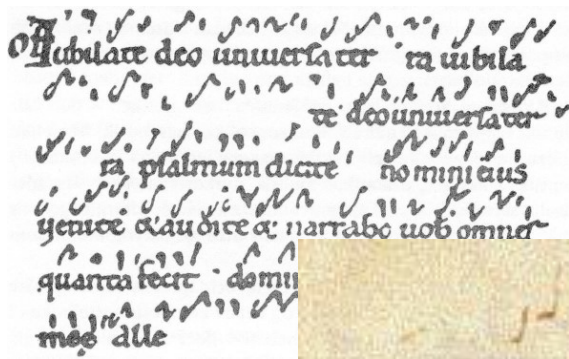 Iubilate deo uniuersa ter ra iubila
te deo uniuersa ter
ra psalmum dicite nomini eius
uenite & audite & narrabo uob omnes
quanta fecit domin
meę alle